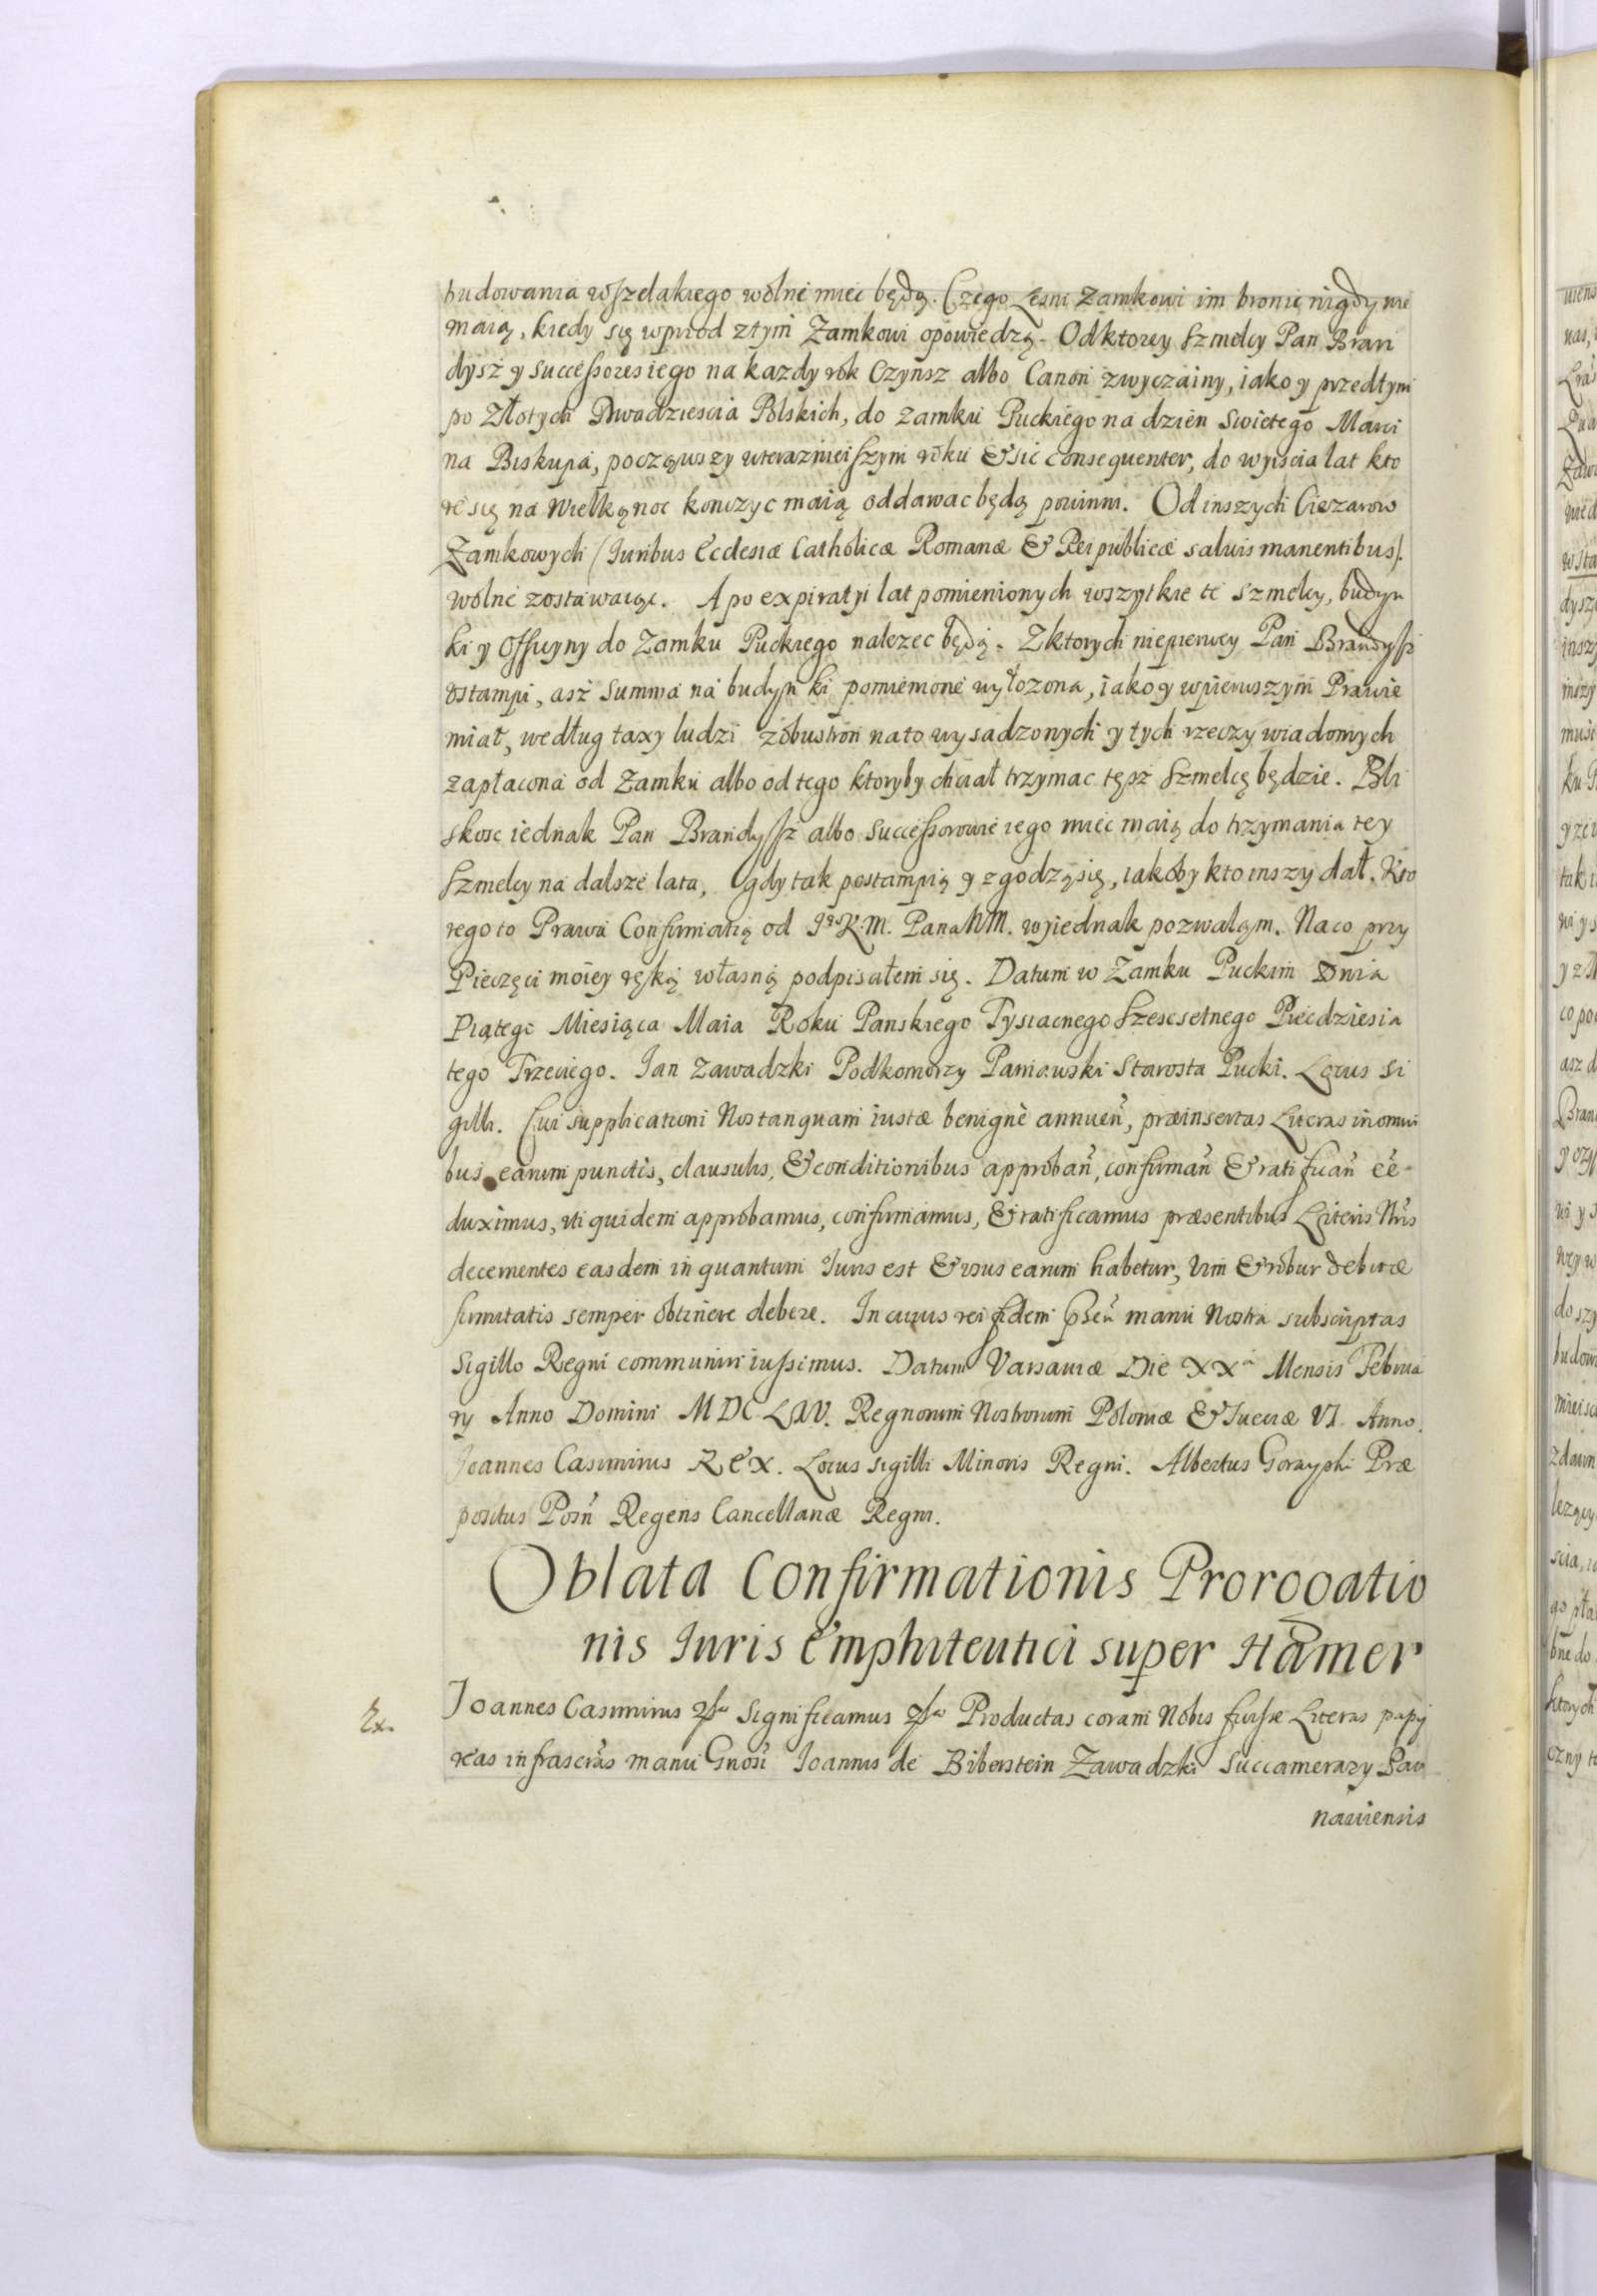 budowania wszelakiego wolne miec będą. Czego Lesni Zamkowi im bronic nigdy nie
maią, kiedy się wprzod ztym Zamkowi opowiedzą. Odktorey Szmelcy Pan Bran
dysz y successores iego na kazdy rok Czynsz albo Canon zwyczainy, iako y przedtym
po Złotych Dwadziescia Polskich, do zamku Puckiego na dzien Swietego Marci
na Biskupa, począwszy wterazniejszym roku & sic consequenter, do wyiscia lat kto
re się na Wielkąnoc konczyc maią oddawac będą powinni. Od inszych Ciezarow
Zamkowych (Iuribus Ecclesiæ Catholicæ Romanæ & Reipublicæ saluis manentibus).
wolne zostawaiąc. A po expiratyi lat pomienionych wszytkie te Szmelcy, budyn
ki y Officyny do Zamku Puckiego nalezec będą. Z ktorych niepierwey Pan Brandysz
ostampi, asz summa na budynki pomienione wyłozona, iako y wpierwszym Prawie
miał, według taxy ludzi zobustron na to wysadzonych y tych rzeczy wiadomych
zapłacona od Zamku albo od tego ktoryby chciał trzymac tęsz Szmelcę będzie. Bli
skosc iednak Pan Brandysz albo Successorowie iego miec maią do trzymania tey
Szmelcy na dalsze lata, gdy tak postampią y zgodzą się, iakoby kto inszy dał. Kto
rego to Prawa Confirmatią od J° K. M. Pana M M. wyiednak pozwaląm. Naco przy
Pieczęci moiey ręką własną podpisałem się. Datum w Zamku Puckim Dnia
Piątego Miesiąca Maia Roku Panskiego Tysiacnego Szescsetnego Piecdziesia
tego Trzeciego. Jan Zawadzki Podkomorzy Parnawski Starosta Pucki. Locus Si
gilli. Cui supplicationi Nos tanquam iustæ benignè annueñ, præinsertas Literas in omni
bus earum punctis, clausulis, & conditionibus approbañ, confirmañ & ratificañ eẽ
duximus, uti quidem approbamus, confirmamus, & ratificamus præsentibus Literis Nr̃is
decernentes easdem in quantum Iuris est & usus earum habetur, vim & robur debitæ
firmitatis semper obtinere debere. In cuius rei fidem p̃señ manu Nostra subscriptas
Sigillo Regni communiri iussimus. Datum Varsauiæ Die XXª Mensis Februa
ry Anno Domini MDCLIV. Regnorum Nostrorum Poloniæ & Sueciæ VI Anno.
Joannes Casimirus REX. Locus sigilli Minoris Regni. Albertus Gorayski Præ
positus Posñ Regens Cancellariæ Regni.
Oblata Confirmationis Prorogatio
nis Iuris Emphiteutici super Hamer
Ex. Joannes Casimirus Significamus Productas coram Nobis fuisse Literas papy
reas infrascr̃as manu Gnosi Joannis de Biberstein Zawadzki Succamerary Par
nauiensis